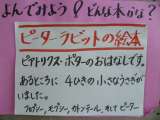 よんでみよう！どんな本かな？
ピーターラビットの絵本
ビアトリクス・ポターのおはなしです。
あるところに 4ひきの 小さなうさぎが
いました。
フロプシー、モプシー、カトンテール、そして ピーター